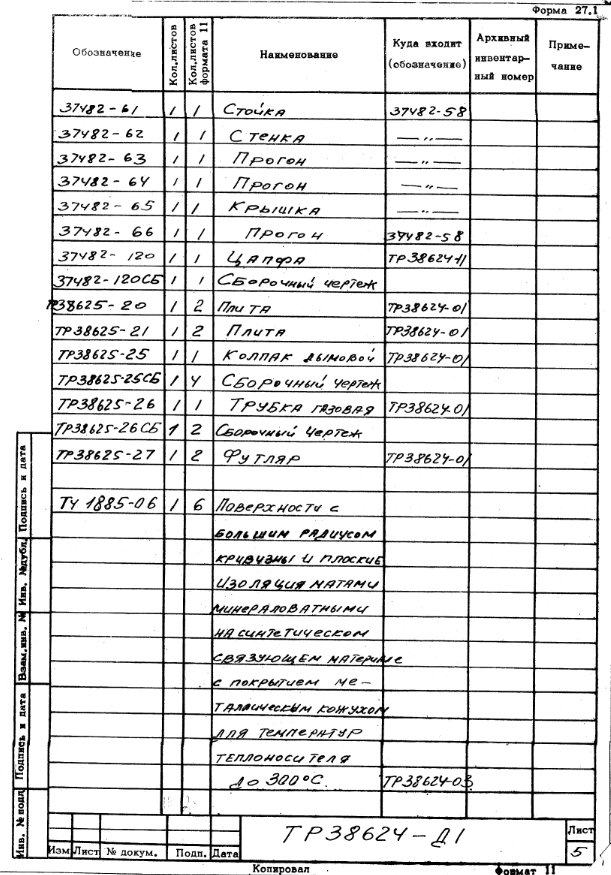 Форма 27.1
Обозначение Кол.листов Кол.листов формата 11 Наименование Куда входит (обозначение) Архивный инвентарный номер Примечание
37482-61 1 1 Стойка 37482-58
37482-62 1 1 Стенка —〃—
37482-63 1 1 Прогон —〃—
37482-64 1 1 Прогон —〃—
37482-65 1 1 Крышка —〃—
37482-66 1 1 Прогон 37482-58
37482-120 1 1 Цапфа ТР38624-11
37482-120СБ 1 1 Сборочный чертеж
ТР38625-20 1 2 Плита ТР38624-01
ТР38625-21 1 2 Плита ТР38624-01
ТР38625-25 1 1 Колпак дымовой ТР38624-01
ТР38625-25СБ 1 4 Сборочный чертеж
ТР38625-26 1 1 Трубка газовая ТР38624-01
ТР38625-26СБ 1 2 Сборочный чертеж
ТР38625-27 1 2 Футляр ТР38624-01
ТУ 1885-06 1 6 Поверхности с
большим радиусом
кривизны и плоские
изоляция матами
минераловатными
на синтетическом
связующем материале
с покрытием ме-
таллическим кожухом
для температур
теплоносителя
до 300°С. ТР38624-03
Инв. № подл Подпись и дата Взам.инв. № Инв. №дубл. Подпись и дата
ТР38624-Д1
Лист
5
Изм Лист № докум. Подп. Дата
Копировал Формат 11